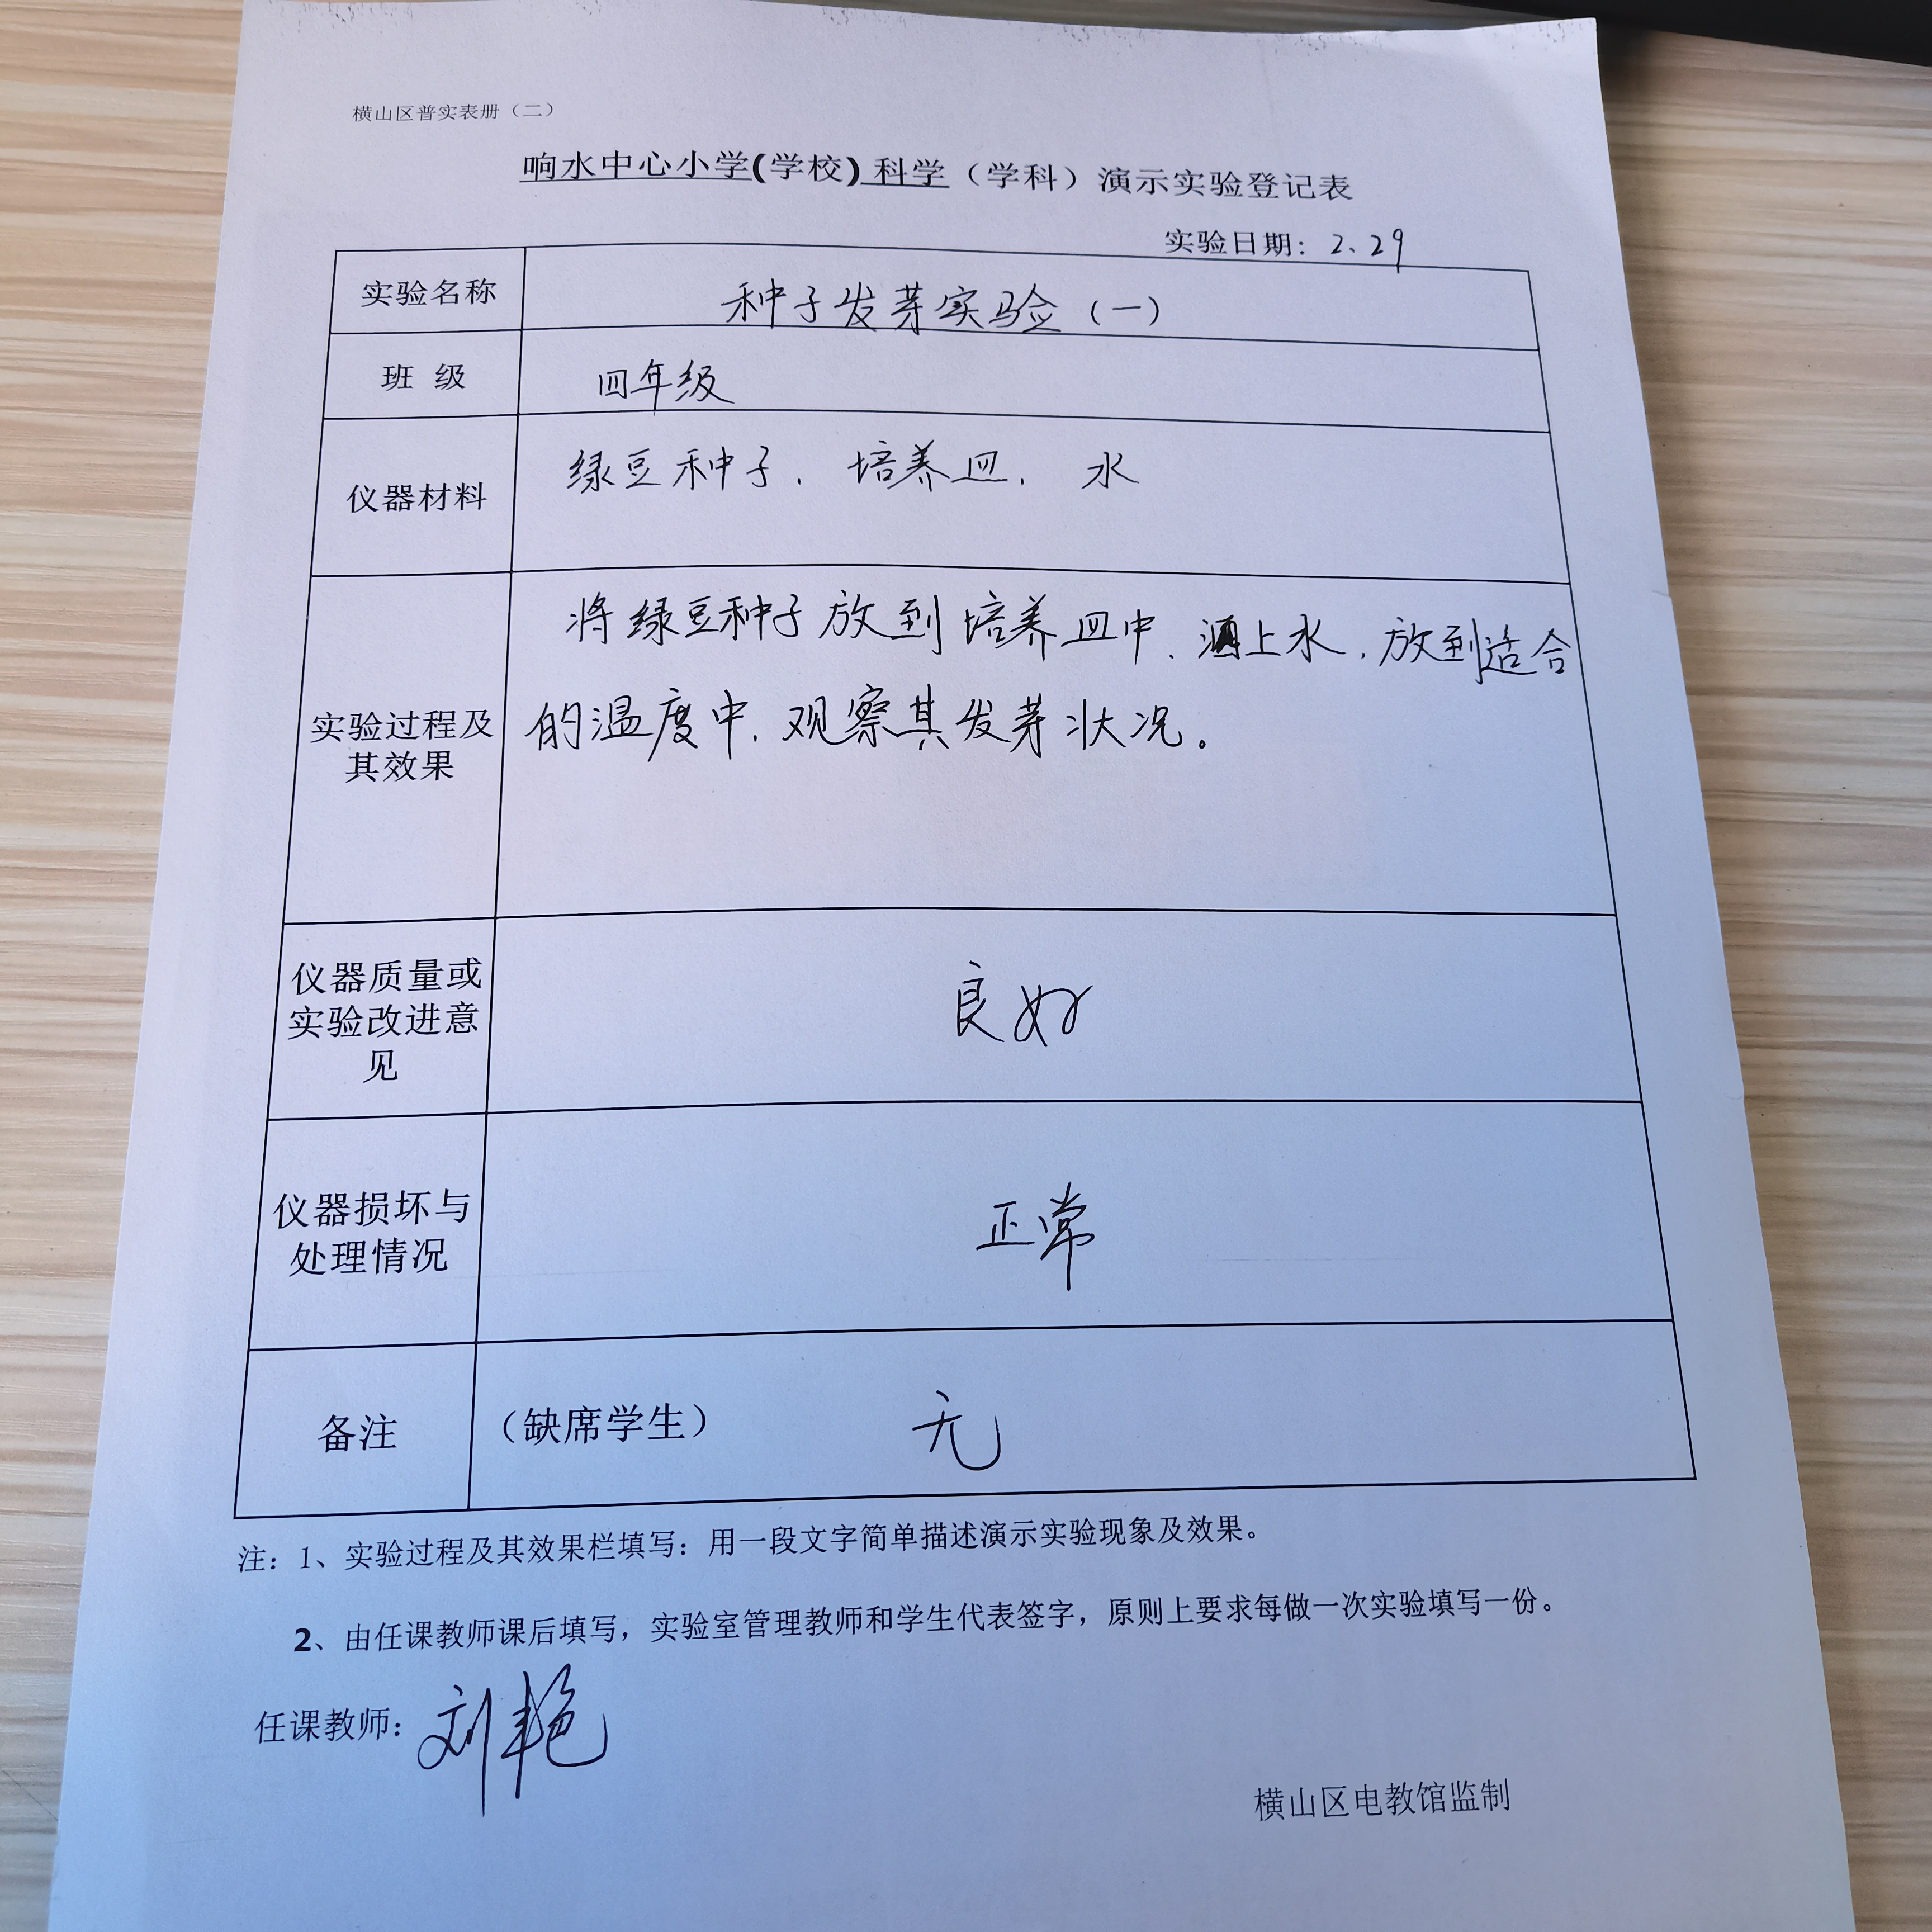 横山区普实表册（二）
响水中心小学(学校) 科学（学科）演示实验登记表
实验日期：2、29
实验名称
种子发芽实验（一）
班 级
四年级
仪器材料
绿豆种子、培养皿、水
实验过程及
其效果
将绿豆种子放到培养皿中、洒上水，放到适合
的温度中，观察其发芽状况。
仪器质量或
实验改进意
见
良好
仪器损坏与
处理情况
正常
备注
（缺席学生） 无
注：1、实验过程及其效果栏填写：用一段文字简单描述演示实验现象及效果。
2、由任课教师课后填写，实验室管理教师和学生代表签字，原则上要求每做一次实验填写一份。
任课教师：刘艳
横山区电教馆监制